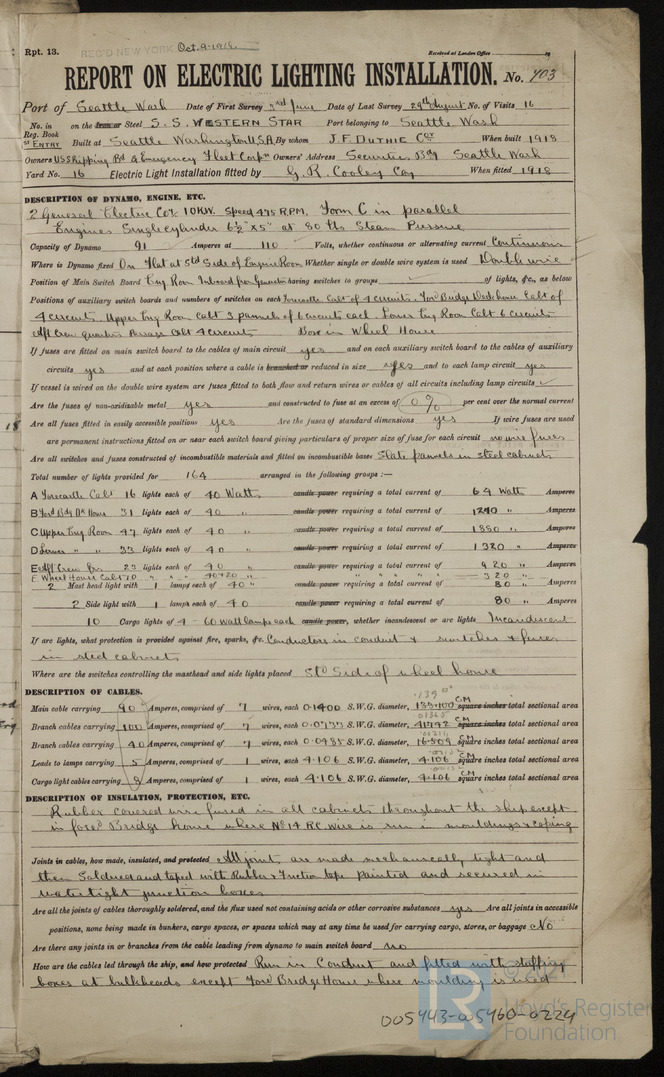 Rpt. 13. REC'D NEW YORK Oct. 9. 1918 Received at London Office
REPORT ON ELECTRIC LIGHTING INSTALLATION. No. 403
Port of Seattle Wash Date of First Survey 3rd June Date of Last Survey 29th August No. of Visits 16
No. in Reg. Book 1st ENTRY on the Iron or Steel S. S. WESTERN STAR Port belonging to Seattle Wash
Built at Seattle Washington U.S.A. By whom J. F. DUTHIE Coy When built 1918
Owners U S Shipping Bd & Emergency Fleet Corpn Owners' Address Securities Bdg Seattle Wash
Yard No. 16 Electric Light Installation fitted by G. R. Cooley Coy When fitted 1918
DESCRIPTION OF DYNAMO, ENGINE, ETC.
2 General Electric Coy. 10 KW. Speed 475 R.P.M. Form C in parallel
Engines Single cylinder 6½" x 5" at 80 lbs Steam Pressure
Capacity of Dynamo 91 Amperes at 110 Volts, whether continuous or alternating current Continuous
Where is Dynamo fixed On Flat at Stbd Side of Engine Room Whether single or double wire system is used Double wire
Position of Main Switch Board Eng Room Inboard from Generators having switches to groups of lights, &c., as below
Positions of auxiliary switch boards and numbers of switches on each Forecastle Cabt of 4 circuits. Ford Bridge Deck house Cabt of
4 circuits. Upper Eng Room cabt 3 pannels of 6 circuits each Lower Eng Room Cabt 6 circuits
Aft Crew quarters Cabt 4 circuits Box in Wheel House
If fuses are fitted on main switch board to the cables of main circuit yes and on each auxiliary switch board to the cables of auxiliary
circuits yes and at each position where a cable is branched or reduced in size yes and to each lamp circuit yes
If vessel is wired on the double wire system are fuses fitted to both flow and return wires or cables of all circuits including lamp circuits ✓
Are the fuses of non-oxidizable metal yes and constructed to fuse at an excess of 0 % per cent over the normal current
Are all fuses fitted in easily accessible positions yes Are the fuses of standard dimensions yes If wire fuses are used
are permanent instructions fitted on or near each switch board giving particulars of proper size of fuse for each circuit no wire fuses
Are all switches and fuses constructed of incombustible materials and fitted on incombustible bases Slate pannels in steel cabinets
Total number of lights provided for 164 arranged in the following groups :—
A Forecastle Cabt 16 lights each of 40 Watts candle power requiring a total current of 64 Watt Amperes
B Ford Bdg Dk House 31 lights each of 40 " candle power requiring a total current of 1240 " Amperes
C Upper Eng Room 47 lights each of 40 " candle power requiring a total current of 1880 " Amperes
D Lower " " 33 lights each of 40 " candle power requiring a total current of 1320 " Amperes
E Aft Crew Qrs 23 lights each of 40 " candle power requiring a total current of 920 " Amperes
F Wheel House Cabt 10 " " " 40 & 20 " " " " " " 320 "
2 Mast head light with 1 lamps each of 40 " candle power requiring a total current of 80 " Amperes
2 Side light with 1 lamps each of 40 candle power requiring a total current of 80 " Amperes
10 Cargo lights of 4 - 60 watt lamps each candle power, whether incandescent or arc lights Incandescent
If arc lights, what protection is provided against fire, sparks, &c. Conductors in conduit & switches & fuses
in steel cabinets
Where are the switches controlling the masthead and side lights placed Stbd Side of wheel house
DESCRIPTION OF CABLES.
Main cable carrying 90 Amperes, comprised of 7 wires, each 0.1400 S.W.G. diameter, 133.100 CM square inches total sectional area
Branch cables carrying 100 Amperes, comprised of 7 wires, each 0.0777 S.W.G. diameter, 41742 CM square inches total sectional area
Branch cables carrying 40 Amperes, comprised of 7 wires, each 0.0485 S.W.G. diameter, 16.509 CM square inches total sectional area
Leads to lamps carrying 5 Amperes, comprised of 1 wires, each 4.106 S.W.G. diameter, 4.106 CM square inches total sectional area
Cargo light cables carrying 9 Amperes, comprised of 1 wires, each 4.106 S.W.G. diameter, 4.106 CM square inches total sectional area
DESCRIPTION OF INSULATION, PROTECTION, ETC.
Rubber covered wire fused in all cabinets throughout the ship except
in ford Bridge house where No 14 R.C. wire is run in mouldings & coping
Joints in cables, how made, insulated, and protected All joints are made mechanically tight and
then Soldered and taped with Rubber & Friction tape painted and secured in
watertight junction boxes
Are all the joints of cables thoroughly soldered, and the flux used not containing acids or other corrosive substances yes Are all joints in accessible
positions, none being made in bunkers, cargo spaces, or spaces which may at any time be used for carrying cargo, stores, or baggage No
Are there any joints in or branches from the cable leading from dynamo to main switch board no
How are the cables led through the ship, and how protected Run in Conduit and fitted with stuffing
boxes at bulkheads except Ford Bridge House where moulding is used
LR © 2021
Lloyd's Register
Foundation
005443-005460-0224